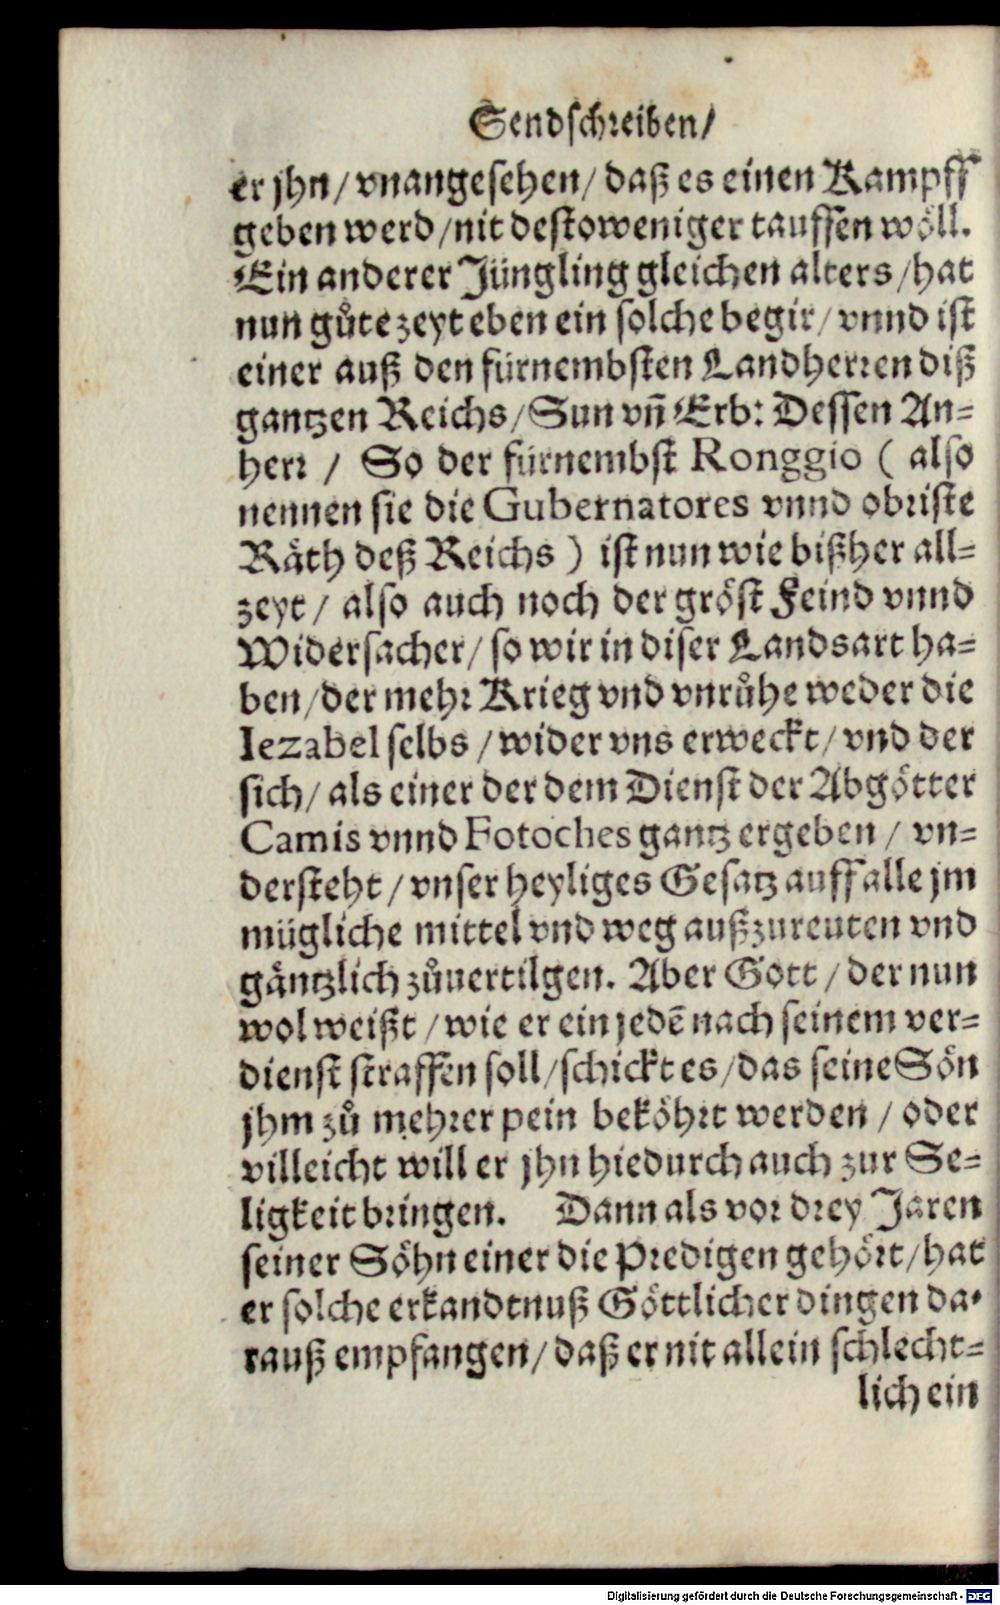 Sendschreiben/
er jhn/ vnangesehen/ daß es einen Kampff
geben werd/nit destoweniger tauffen wöll.
Ein anderer Jüngling gleichen alters/hat
nun gůte zeyt eben ein solche begir/ vnnd ist
einer auß den fürnembsten Landherren diß
gantzen Reichs/Sun vn̄ Erb: Dessen An=
herr / So der fürnembst Ronggio ( also
nennen sie die Gubernatores vnnd obriste
Räth deß Reichs ) ist nun wie bißher all=
zeyt/ also auch noch der gröst Feind vnnd
Widersacher/ so wir in diser Landsart ha=
ben/der mehr Krieg vnd vnrůhe weder die
Iezabel selbs /wider vns erweckt/ vnd der
sich/ als einer der dem Dienst der Abgötter
Camis vnnd Fotoches gantz ergeben / vn=
dersteht/ vnser heyliges Gesatz auff alle jm
mügliche mittel vnd weg außzureuten vnd
gäntzlich zůuertilgen. Aber Gott / der nun
wol weißt /wie er ein jedē nach seinem ver=
dienst straffen soll/schickt es/das seine Sön
jhm zů mehrer pein beköhrt werden / oder
villeicht will er jhn hiedurch auch zur Se=
ligkeit bringen. Dann als vor drey Jaren
seiner Söhn einer die Predigen gehört/hat
er solche erkandtnuß Göttlicher dingen da=
rauß empfangen/daß er nit allein schlecht=
lich ein
Digitalisierung gefördert durch die Deutsche Forschungsgemeinschaft - DFG